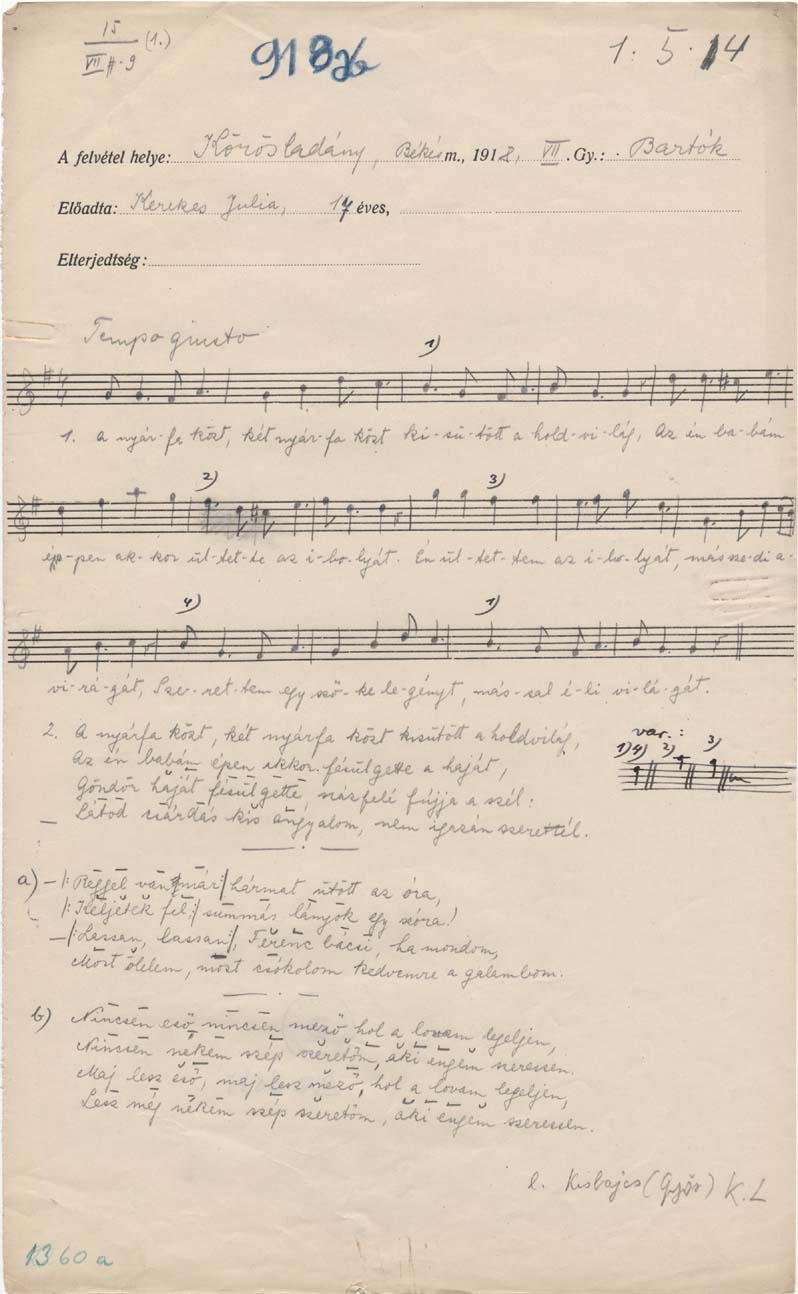 15 (1.)
VII #·9
1. 5. 14
A felvétel helye: Körösladány, Békés m., 1918, VII. Gy.: Bartók
Előadta: Kerekes Julia, 17 éves,
Elterjedtség:
Tempo giusto
1)
1. A nyár-fa közt, két nyár-fa közt ki-sü-tött a hold-vi-lág, Az én ba-bám
2) 3)
ép-pen ak-kor ül-tet-te az i-bo-lyát. Én ül-tet-tem az i-bo-lyát, más sze-di a-
4) 1)
vi-rá-gát, Sze-ret-tem egy sző-ke le-gényt, más-sal é-li vi-lá-gát.
2. A nyárfa közt, két nyárfa közt kisütött a holdvilág,
Az én babám épen akkor fésülgette a haját,
Göndör haját fésülgette, házfelé fújja a szél:
Látod csárdás kis angyalom, nem igazán szerettél.
var.:
1) 4) 2) 3)
a) – |: Reggel van már :| hármat ütött az óra,
|: Keljetek fel :| summás lányok egy szóra!
– |: Lassan, lassan :|, Ferenc bácsi, ha mondom,
Most ölelem, most csókolom kedvemre a galambom.
b) Nincsen eső, nincsen mező, hol a lovam legeljen,
Nincsen nekem szép szeretőm, aki engem szeressen.
Maj lesz eső, maj lesz mező, hol a lovam legeljen,
Lesz még nékem szép szeretőm, aki engem szeressen.
l. Kisbajcs (Győr) K. L
1360 a